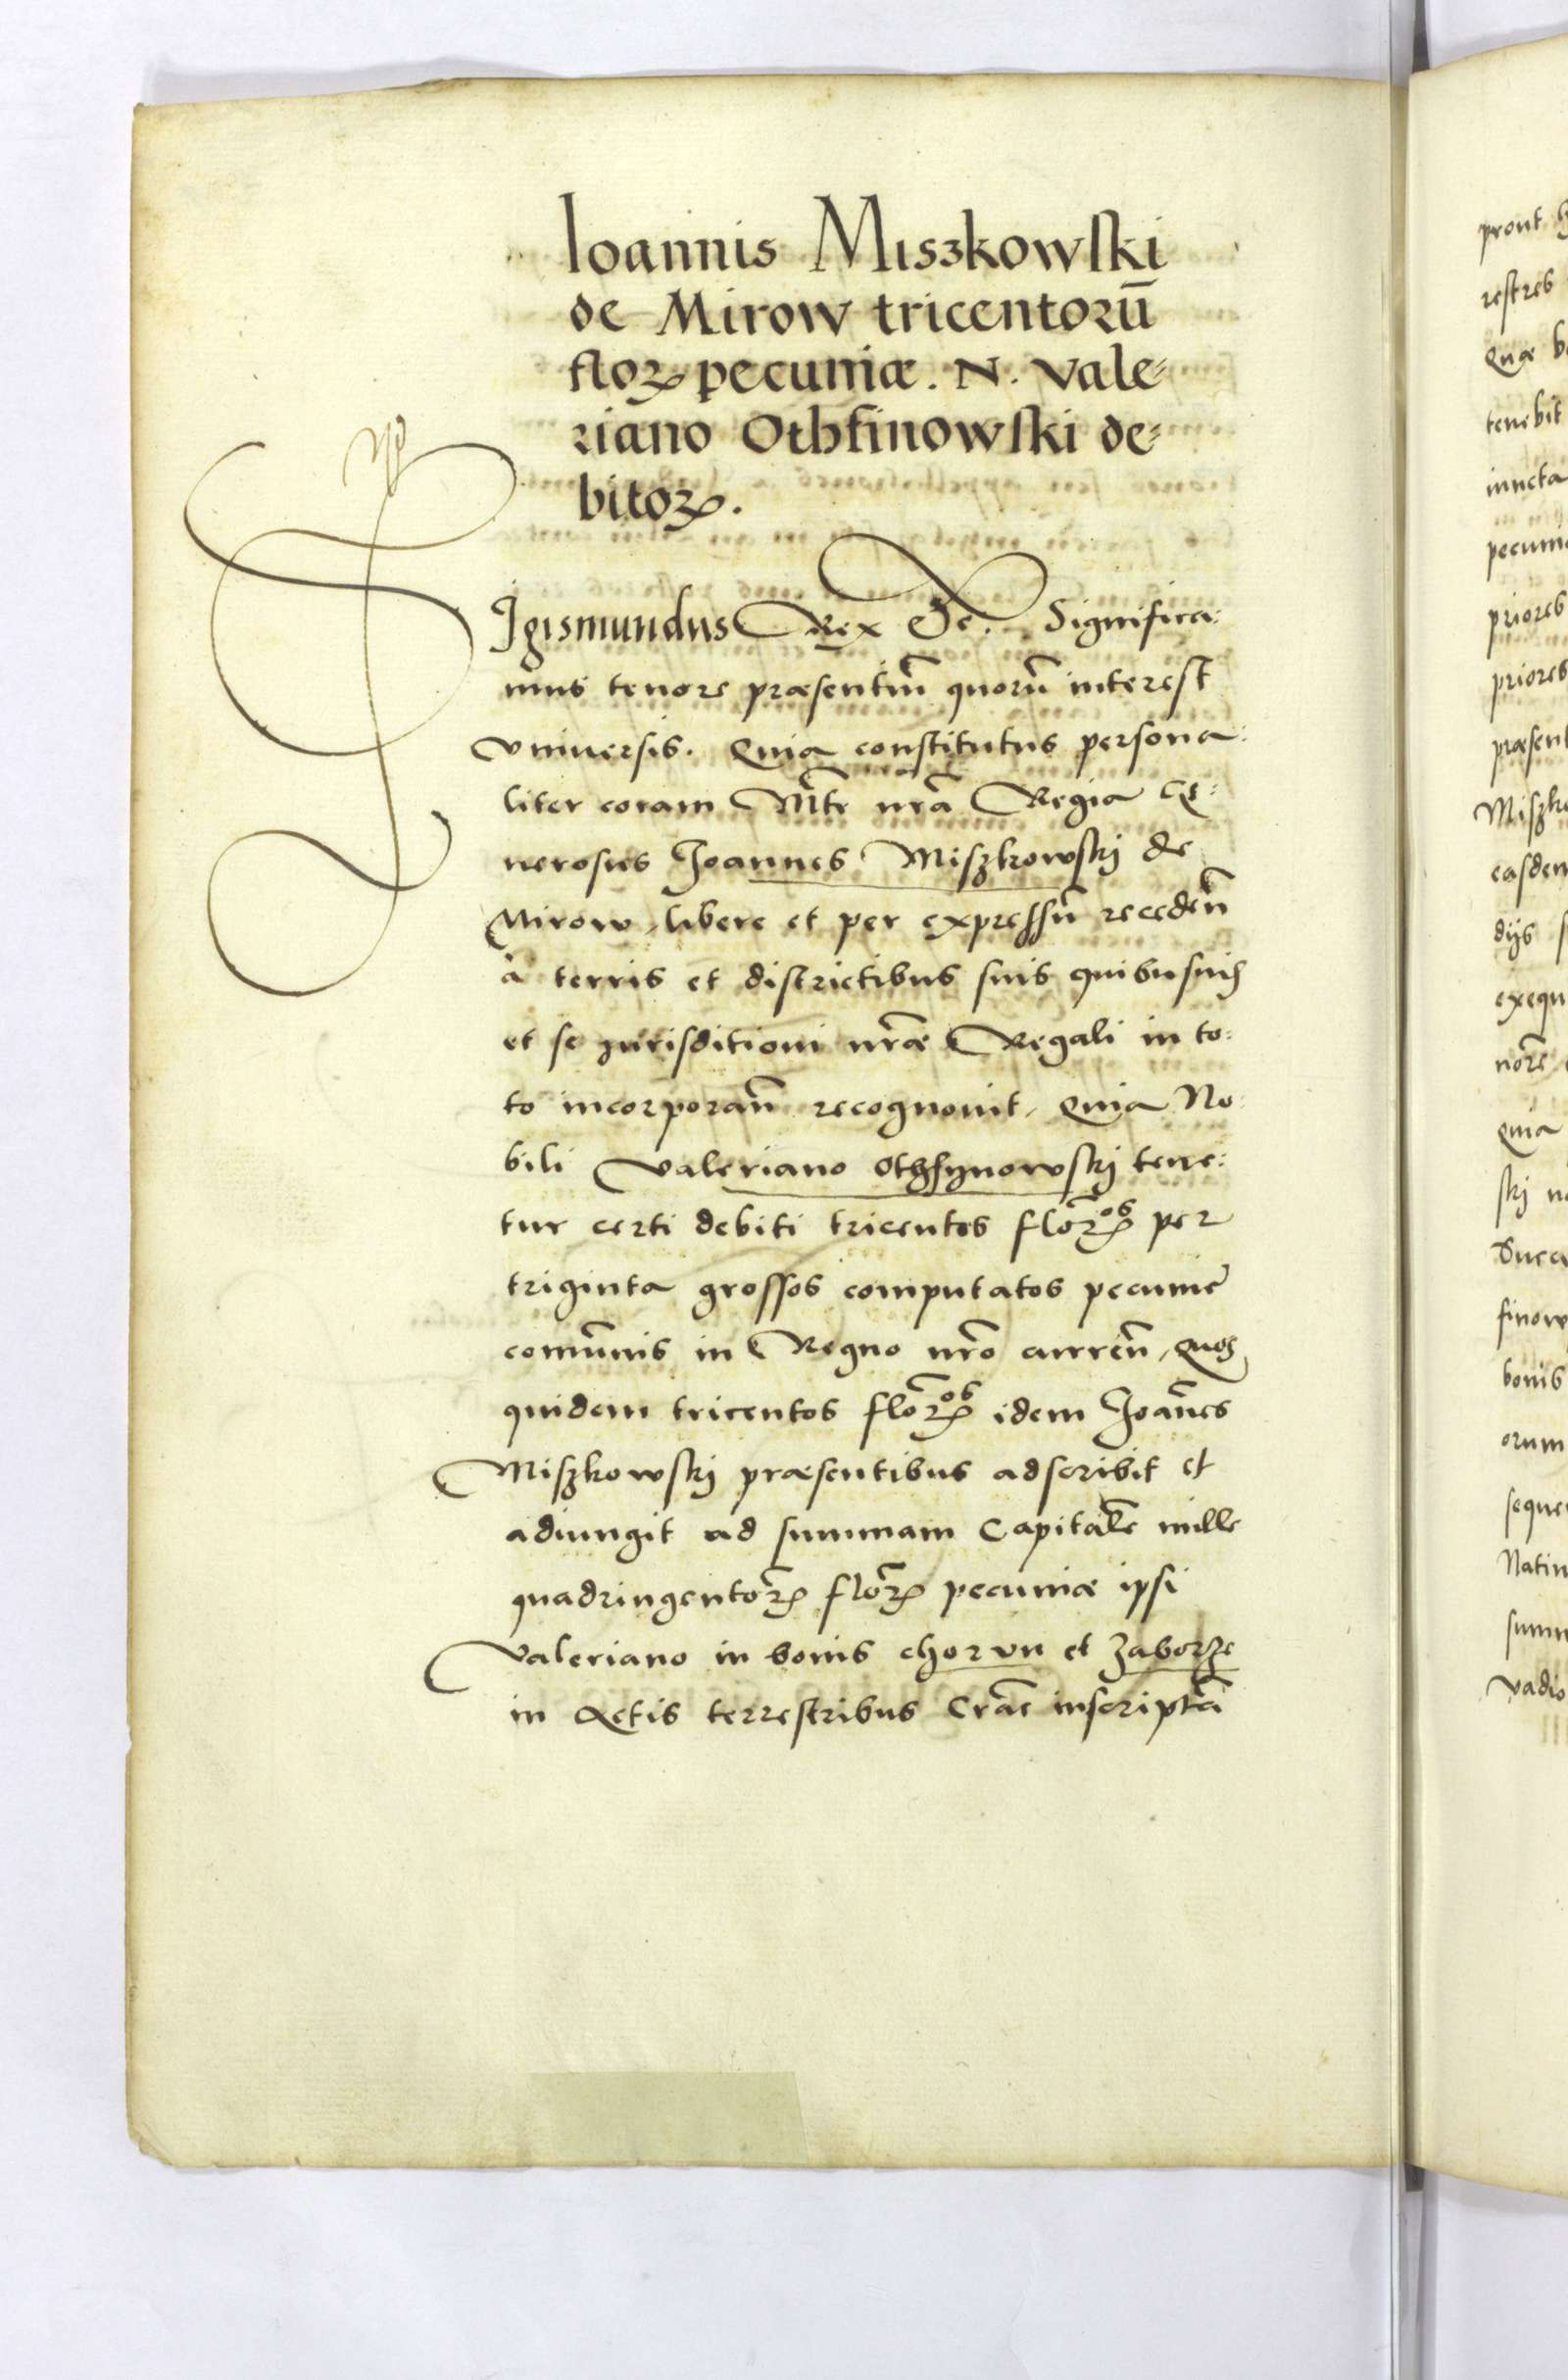 Ioannis Miszkowski
de Mirow tricentorū
floꝝ pecuniæ. N. Vale=
riano Othfinowski de=
bitoꝝ.
SIgismundus Rex &c. Significa:
mus tenore præsentiū quorū interest
vniversis. Quia constitutus persona:
liter coram Mte nrā Regia Ge:
nerosus Joannes Miszkowskj de
Mirow, libere et per expressū recedeñ
à terris et districtibus suis quibusuis
et se jurisditioni nr̄æ Regali in to:
to incorporañ recognovit, Quia No:
bili Valeriano Othfynowskj tene:
tur certi debiti tricentos floꝝos per
triginta grossos computatos pecuniē
comūnis in Regno nr̄o curreñ, Quos
quidem tricentos floꝝos idem Joān̄es
Miszkowskj præsentibus adscribit et
adiungit ad summam Capitalē mille
quadringentoꝝ floꝝ pecuniæ ipsi
Valeriano in bonis chorun et Zaborze
in Actis terrestribus Crac̄ inscriptā
pront
restres
Quæ
tenebit
iuncta
priores
priores
præsent
easdem
dijs
norē
Quia
skj
finow
bonis
orum
vadio